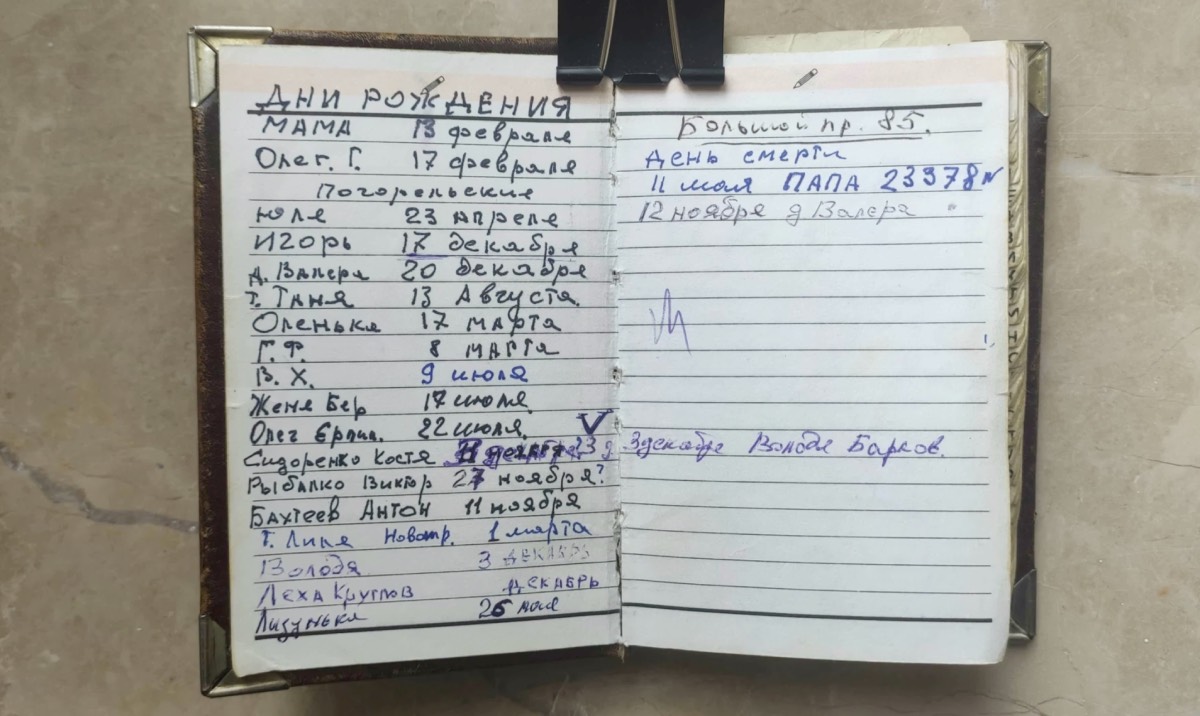 ДНИ РОЖДЕНИЯ
МАМА 13 февраля
Олег. Г. 17 февраля
Погорельские
Юля 23 апреля
Игорь 17 декабря
д. Валера 20 декабря
т. Таня 13 Августа
Оленька 17 марта
Г. Ф. 8 марта
В. Х. 9 июля
Женя Бер 17 июля.
Олег Ерпил. 22 июля. V
Сидоренко Костя
Рыбалко Виктор 27 ноября?
Бахтеев Антон 11 ноября
т. Лиля Новотр. 1 марта
Володя 3 ДЕКАБРЬ
Лёха Круглов ДЕКАБРЬ
Лизунька 26 мая
Большой пр. 85.
День смерти
11 мая ПАПА 23378
12 ноября д Валера
3 декабря Володя Барков.